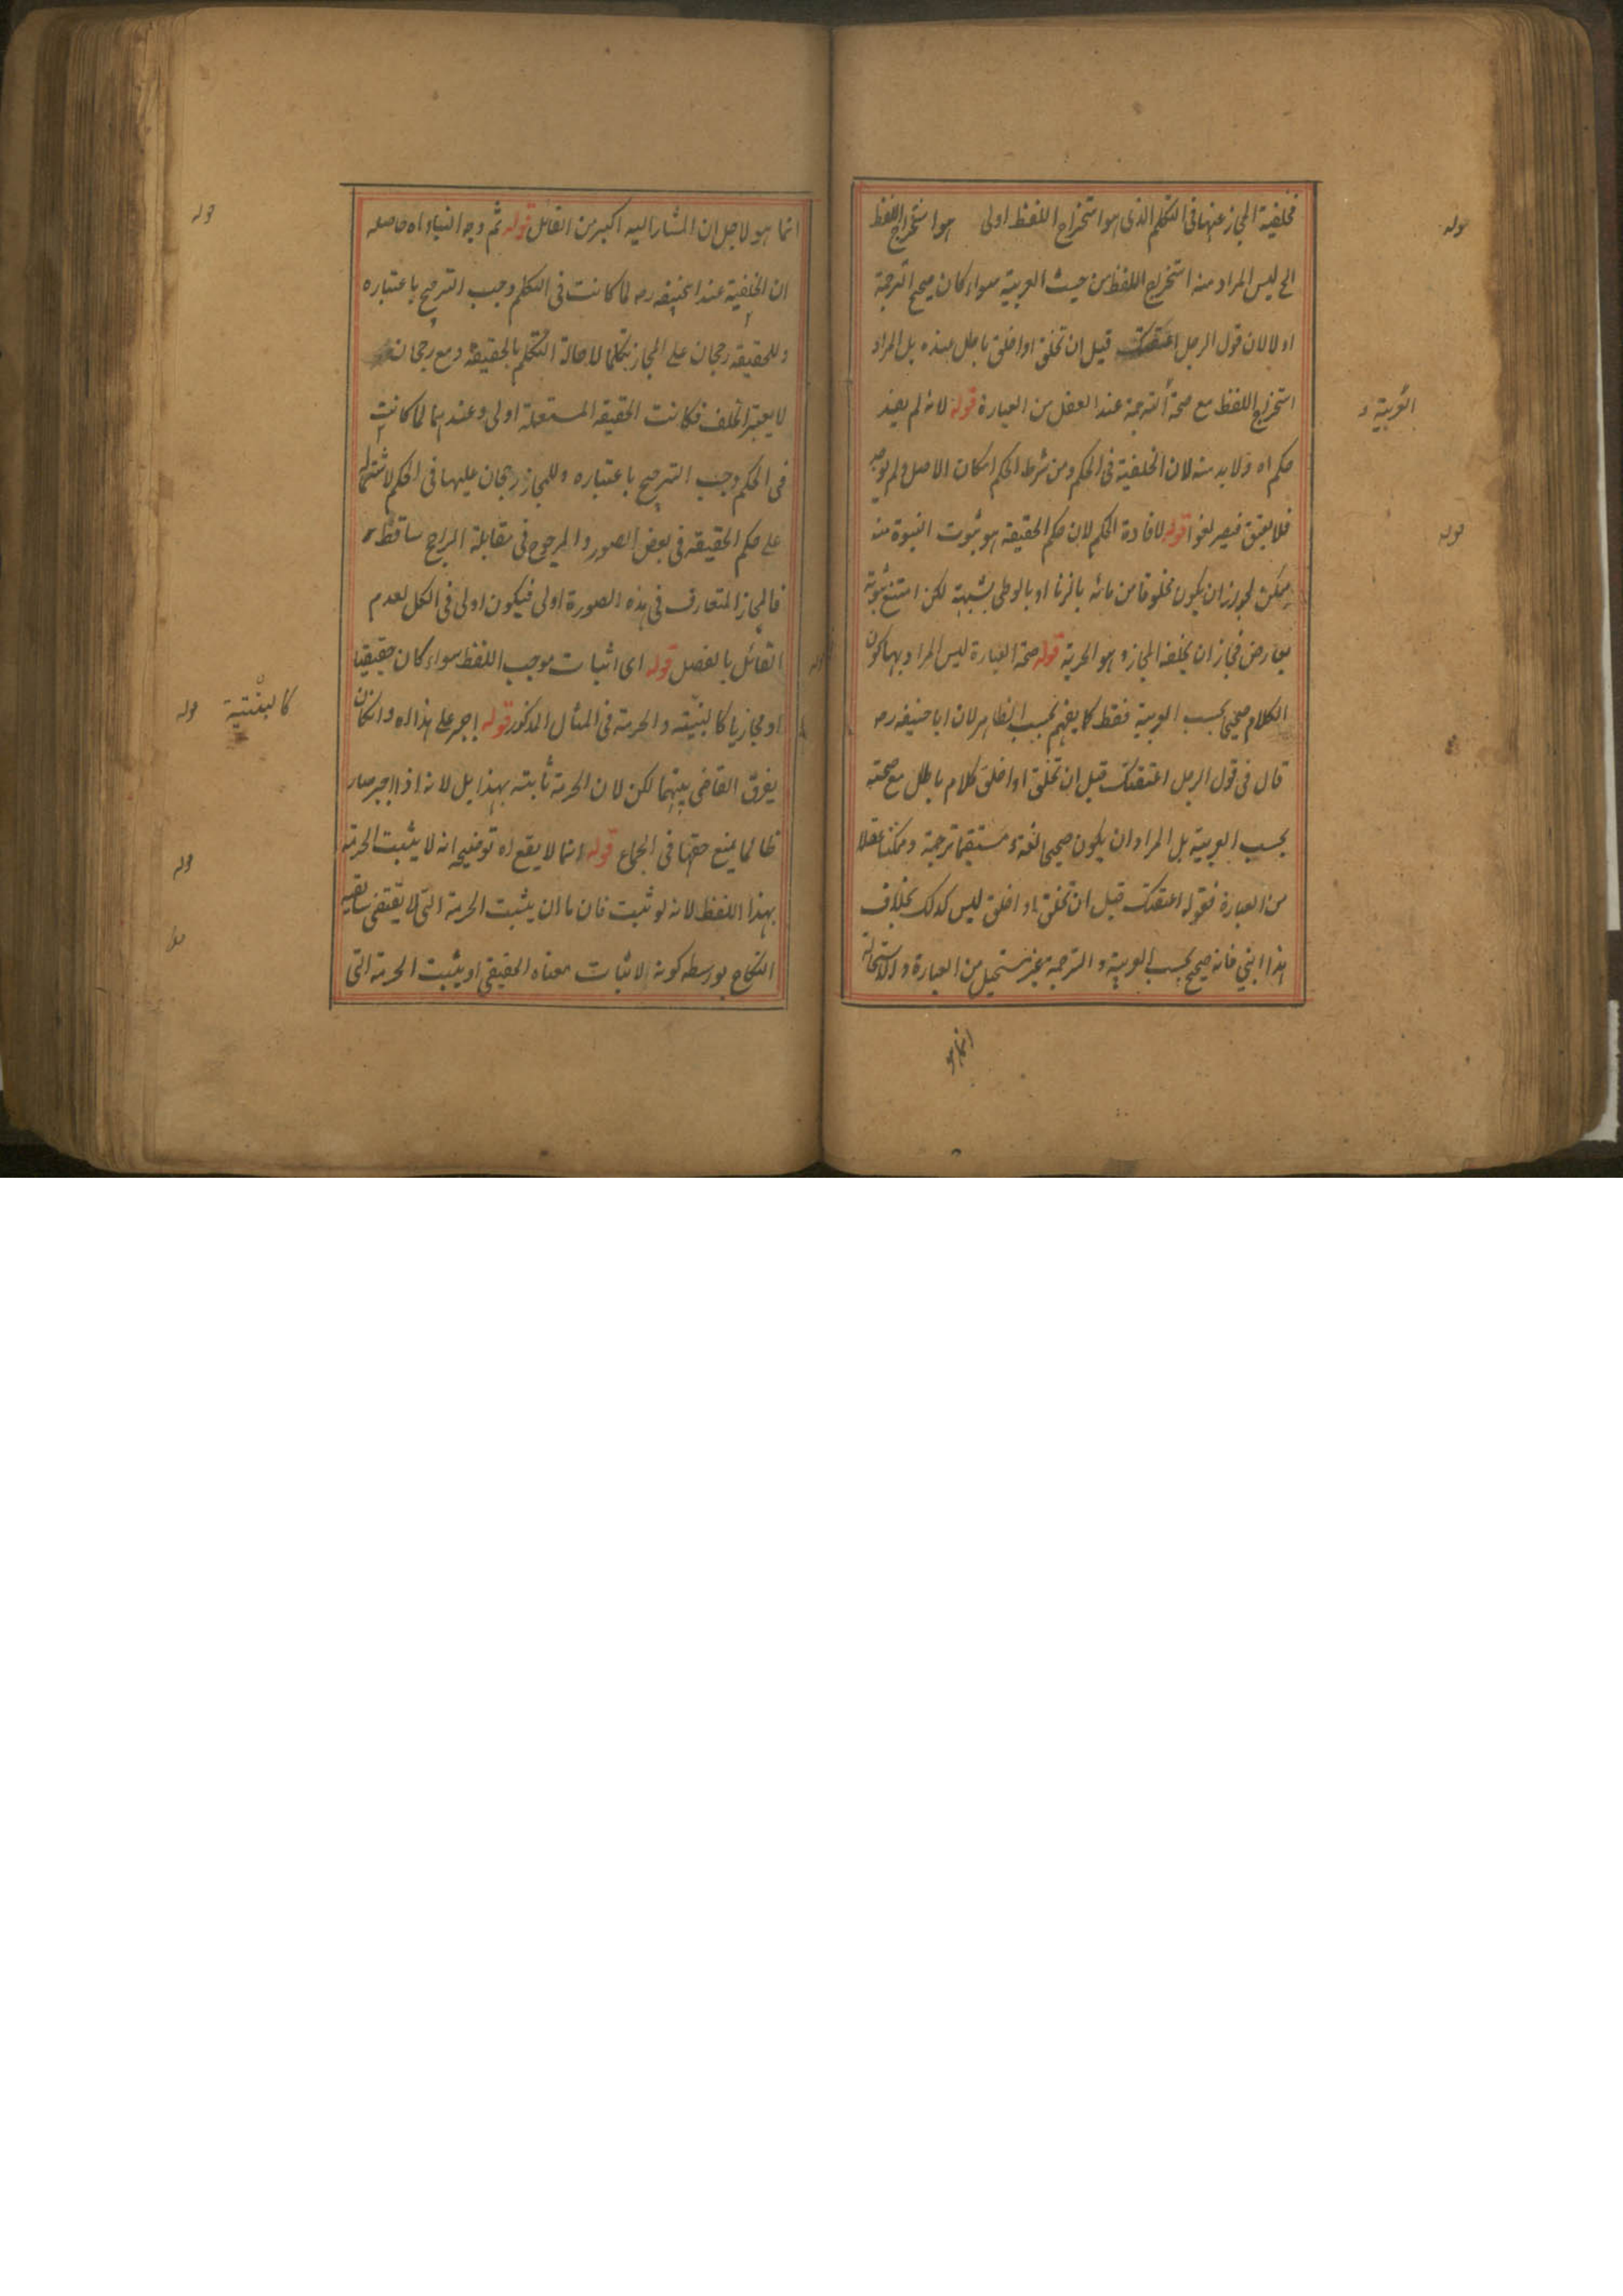 فخلفية المجاز عنها فى التكلم الذى هو استخراج اللفظ اولى هو استخراج اللفظ
الخ ليس المراد منه استخراج اللفظ من حيث العربية سواء كان صحيح الترجمة
او لا لان قول الرجل اعتقتك قبل ان تخلق او اخلق باطل بهذه بل المراد
استخراج اللفظ مع صحة الترجمة عند العقل من العبارة قوله لانه لم يفد
حكم اه ولا بد منه لان الخلفية فى الحكم ومن شرط الحكم امكان الاصل ولم يوجد
فلا يعتق فيصير لغوا قوله لافادة الحكم لان حكم الحقيقة هو ثبوت البنوة منه
ممكن لجواز ان يكون مخلوقا من مائه بالزنا او بالوطى بشبهة لكن امتنع ثبوته
بعارض فجاز ان يخلفه المجاز وهو الحرية قوله صحة العبارة ليس المراد بها كون
الكلام صحيحا بحسب العربية فقط كما يفهم بحسب الظاهر لان ابا حنيفه رح
قال فى قول الرجل اعتقتك قبل ان تخلق او اخلق كلام باطل مع صحته
بحسب العربية بل المراد ان يكون صحيحا لغة و مستقيما ترجمة وممكنا عقلا
من العبارة فقوله اعتقتك قبل ان تخلق او اخلق ليس كذلك بخلاف
هذا ابنى فانه صحيح بحسب العربية و الترجمة غير مستحيل من العبارة والاستحالة
انما هو
قوله
العربية و
قوله
انما هو لاجل ان المشار اليه اكبر من القائل قوله ثم وجه البناء اه حاصله
ان الخلفية عند ابحنيفه رح لما كانت فى التكلم وجب الترجيح باعتباره
وللحقيقة رجحان على المجاز تكلما لاصالة التكلم بالحقيقة ومع رجحانه
لا يعتبر الخلف فكانت الحقيقة المستعملة اولى وعندهما لما كانت
فى الحكم وجب الترجيح باعتباره وللمجاز رجحان عليها فى الحكم لاشتماله
على حكم الحقيقة فى بعض الصور والمرجوح فى مقابلة الراجح ساقط
فالمجاز المتعارف فى هذه الصورة اولى فيكون اولى فى الكل لعدم
القائل بالفصل قوله اى اثبات موجب اللفظ سواء كان حقيقيا
او مجازيا كالبنتية والحرمة فى المثال المذكور قوله اجبر على هذا اه وان كان
يفرق القاضى بينهما لكن لا ان الحرمة ثابتة بهذا بل لانه اذا اجبر صار
ظالما يمنع حقها فى الجماع قوله انما لا يقع اه توضيحه انه لا يثبت الحرمة
بهذا اللفظ لانه لو ثبت فاما ان يثبت الحرمة التى لا يقتضى سابقية
النكاح بواسطة كونه لاثبات معناه الحقيقى او يثبت الحرمة التى
قوله
كالبنتية
قوله
قوله